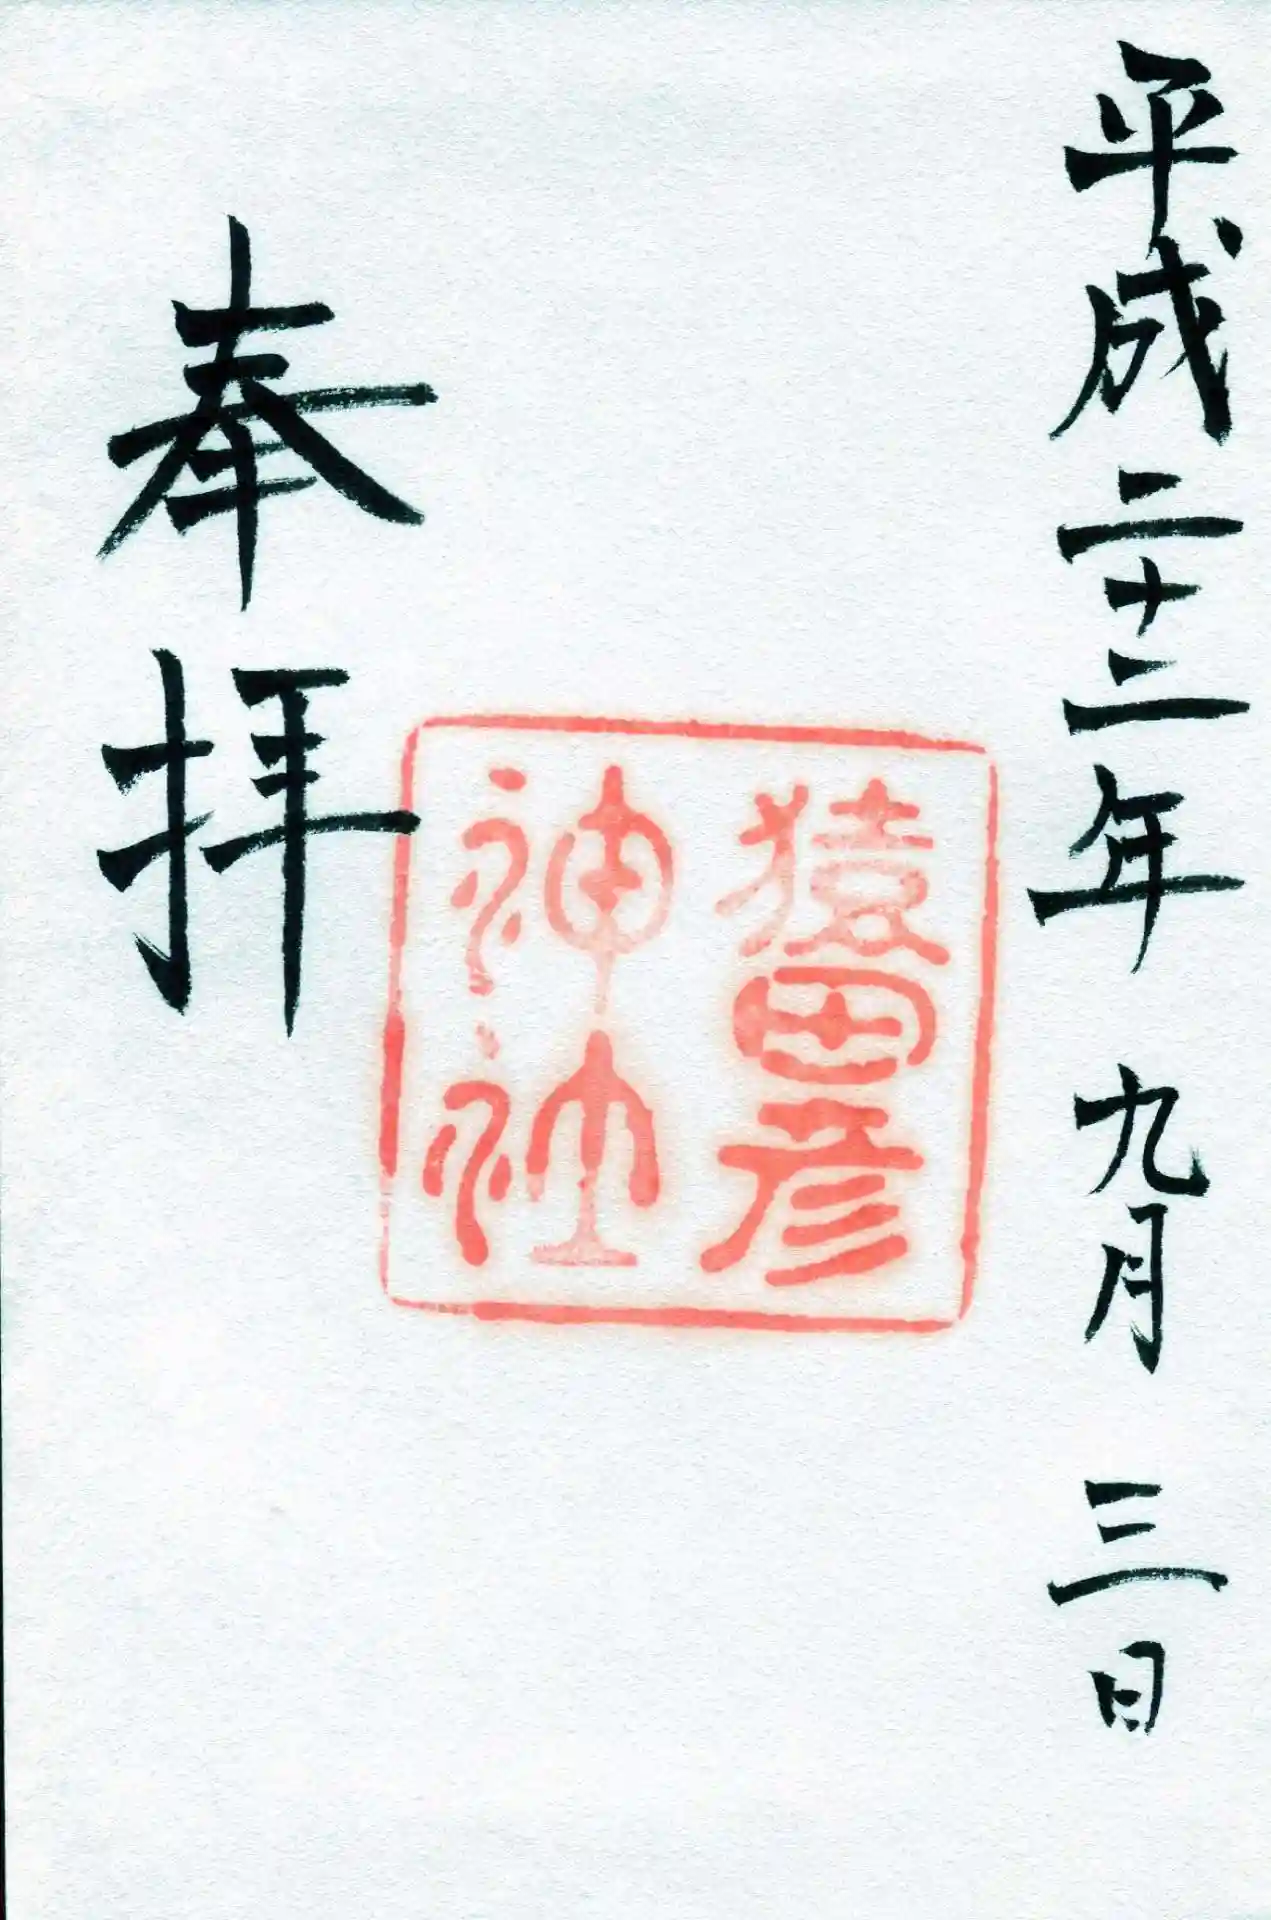 平成二十二年 九月 三日
猿田彦
神社
奉拝